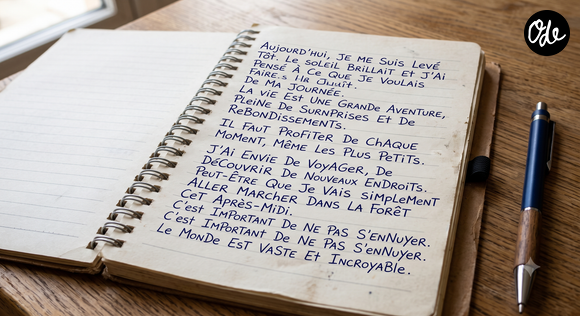 Ode
AUJOURD'HUI, JE ME SUIS LEVÉ
TÔT. LE SOLEIL BRILLAIT ET J'AI
PENSÉ À CE QUE JE VOULAIS
FAIRE.
DE MA JOURNÉE.
LA VIE EST UNE GRANDE AVENTURE,
PLEINE DE SURNPRISES ET DE
REBONDISSEMENTS.
IL FAUT PROFITER DE CHAQUE
MOMENT, MÊME LES PLUS PETITS.
J'AI ENVIE DE VOYAGER, DE
DÉCOUVRIR DE NOUVEAUX ENDROITS.
PEUT-ÊTRE QUE JE VAIS SIMPLEMENT
ALLER MARCHER DANS LA FORÊT
CET APRÈS-MIDI.
C'EST IMPORTANT DE NE PAS S'ENNUYER.
C'EST IMPORTANT DE NE PAS S'ENNUYER.
LE MONDE EST VASTE ET INCROYABLE.